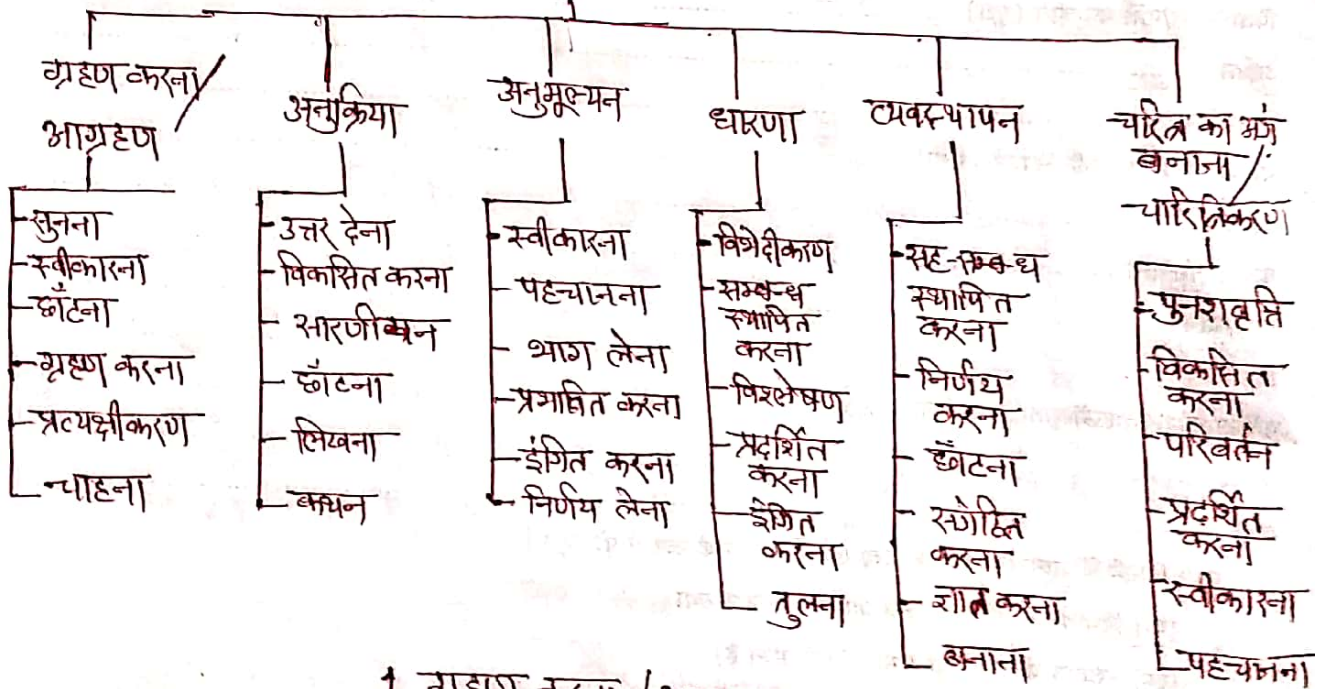 ग्रहण करना/
आग्रहण
सुनना
स्वीकारना
छाँटना
ग्रहण करना
प्रत्यक्षीकरण
चाहना
अनुक्रिया
उत्तर देना
विकसित करना
सारणीयन
छाँटना
लिखना
कथन
अनुमूल्यन
स्वीकारना
पहचानना
भाग लेना
प्रभावित करना
इंगित करना
निर्णय लेना
धारणा
विभेदीकरण
सम्बन्ध
स्थापित
करना
विश्लेषण
प्रदर्शित
करना
इंगित
करना
तुलना
व्यवस्थापन
सह-सम्बन्ध
स्थापित
करना
निर्णय
करना
छाँटना
करना
ज्ञात करना
बनाना
चरित्र का अंग
बनाना/
चारित्रिकरण
पुनरावृत्ति
विकसित
करना
परिवर्तन
प्रदर्शित
करना
स्वीकारना
पहचानना
1. ग्रहण करना/